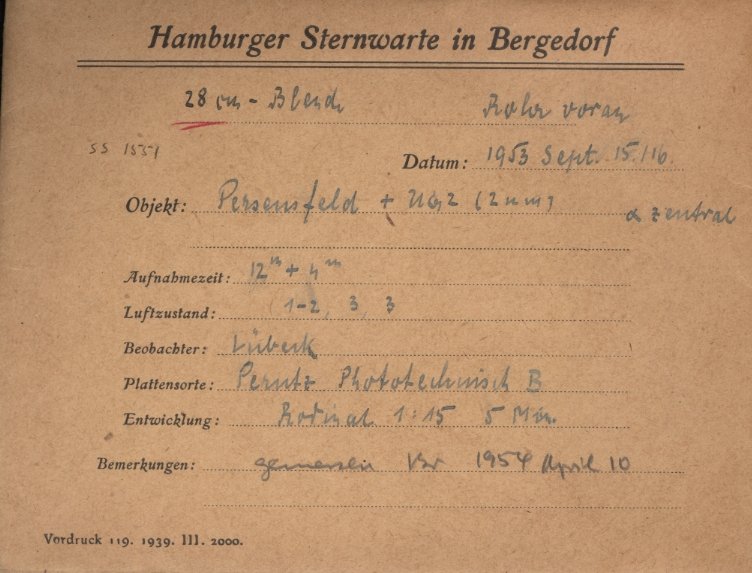 Hamburger Sternwarte in Bergedorf
28 cm - Blende Rohr voran
SS 1531
Datum: 1953 Sept. 15./16.
Objekt: Perseusfeld + UG2 (2mm) α zentral
Aufnahmezeit: 12ᵐ + 4ᵐ
Luftzustand: 1-2, 3, 3
Beobachter: Lübeck
Plattensorte: Perutz Phototechnisch B
Entwicklung: Rodinal 1:15 5 Min.
Bemerkungen: gemessen 1954 April 10
Vordruck 119. 1939. III. 2000.